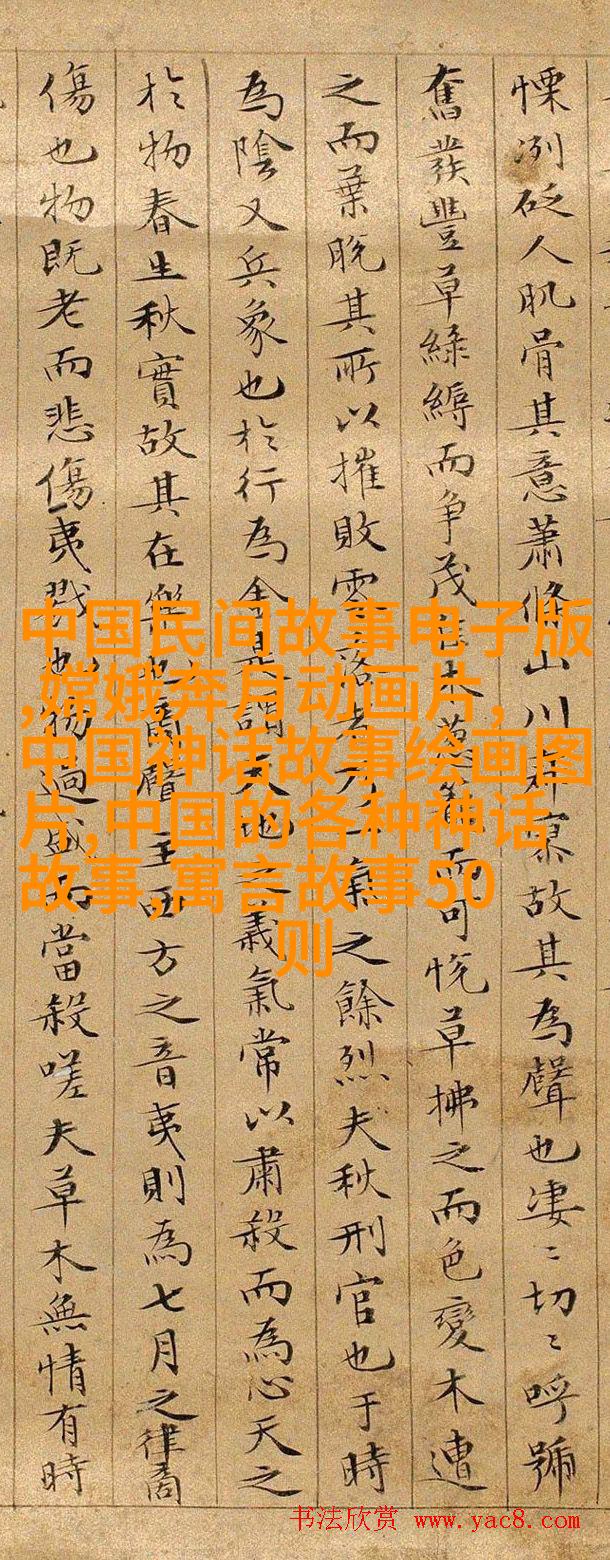 慄冽砭人肌骨其意蕭條山川寂寥故其為聲也凄〻切〻呼號
奮發豐草綠縟而爭茂佳木蔥蘢而可悅草拂之而色變木遭
之而葉脫其所以摧敗零落者乃一氣之餘烈夫秋刑官也于時
為陰又兵象也於行為金是謂天地之義氣常以肅殺而為心天之
於物春生秋實故其在樂也商聲主西方之音夷則為七月之律商
傷也物既老而悲傷夷戮也物過盛而當殺嗟夫草木無情有時
中国民间故事电子版
,嫦娥奔月动画片,
中国神话故事绘画图
片,中国的各种神话
故事,寓言故事50
则
书法欣赏 www.yac8.com